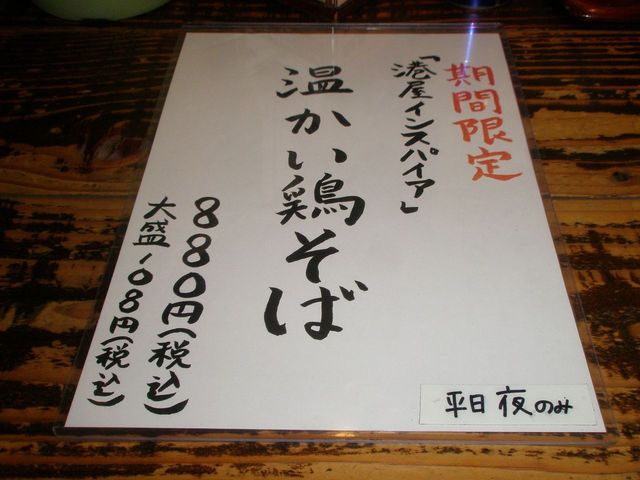 期間限定
「港屋インスパイア」
温かい鶏そば
880円(税込)
大盛108円(税込)
平日夜のみ